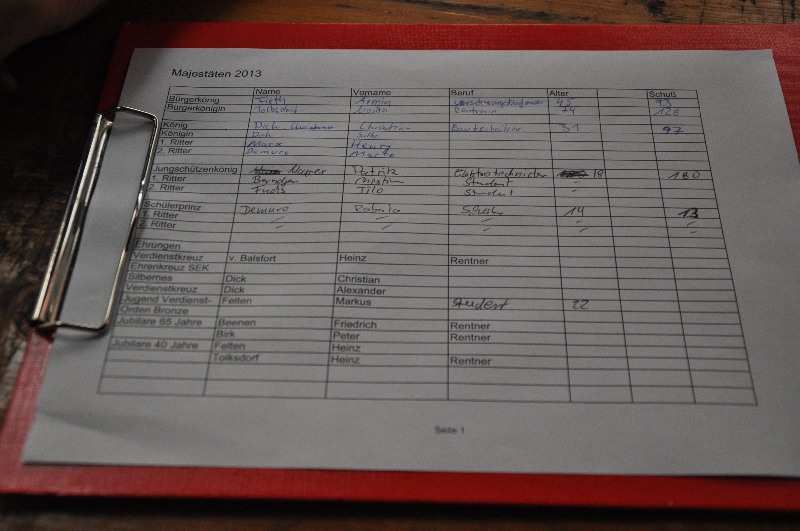 Majestäten 2013
Name Vorname Beruf Alter Schuß
Bürgerkönig Armin 45 93
Bürgerkönigin Tolksdorf Rentnerin 74 128
König Dick Christian 51 97
Königin Dick
1. Ritter Marx Henry
2. Ritter Demuro Marko
Jungschützenkönig Maurer Patrik Elektrotechniker 18 180
1. Ritter Student -
2. Ritter Fuchs Tilo Student
Schülerprinz Demuro 14 13
1. Ritter - - - - -
2. Ritter - - - - -
Ehrungen
Verdienstkreuz v. Balsfort Heinz Rentner
Ehrenkreuz SEK
Silbernes Dick Christian
Verdienstkreuz Dick Alexander
Jugend Verdienst- Felten Markus Student 22
Orden Bronze
Jubilare 65 Jahre Beenen Friedrich Rentner
Birk Peter Rentner
Jubilare 40 Jahre Felten Heinz
Tolksdorf Heinz Rentner
Seite 1